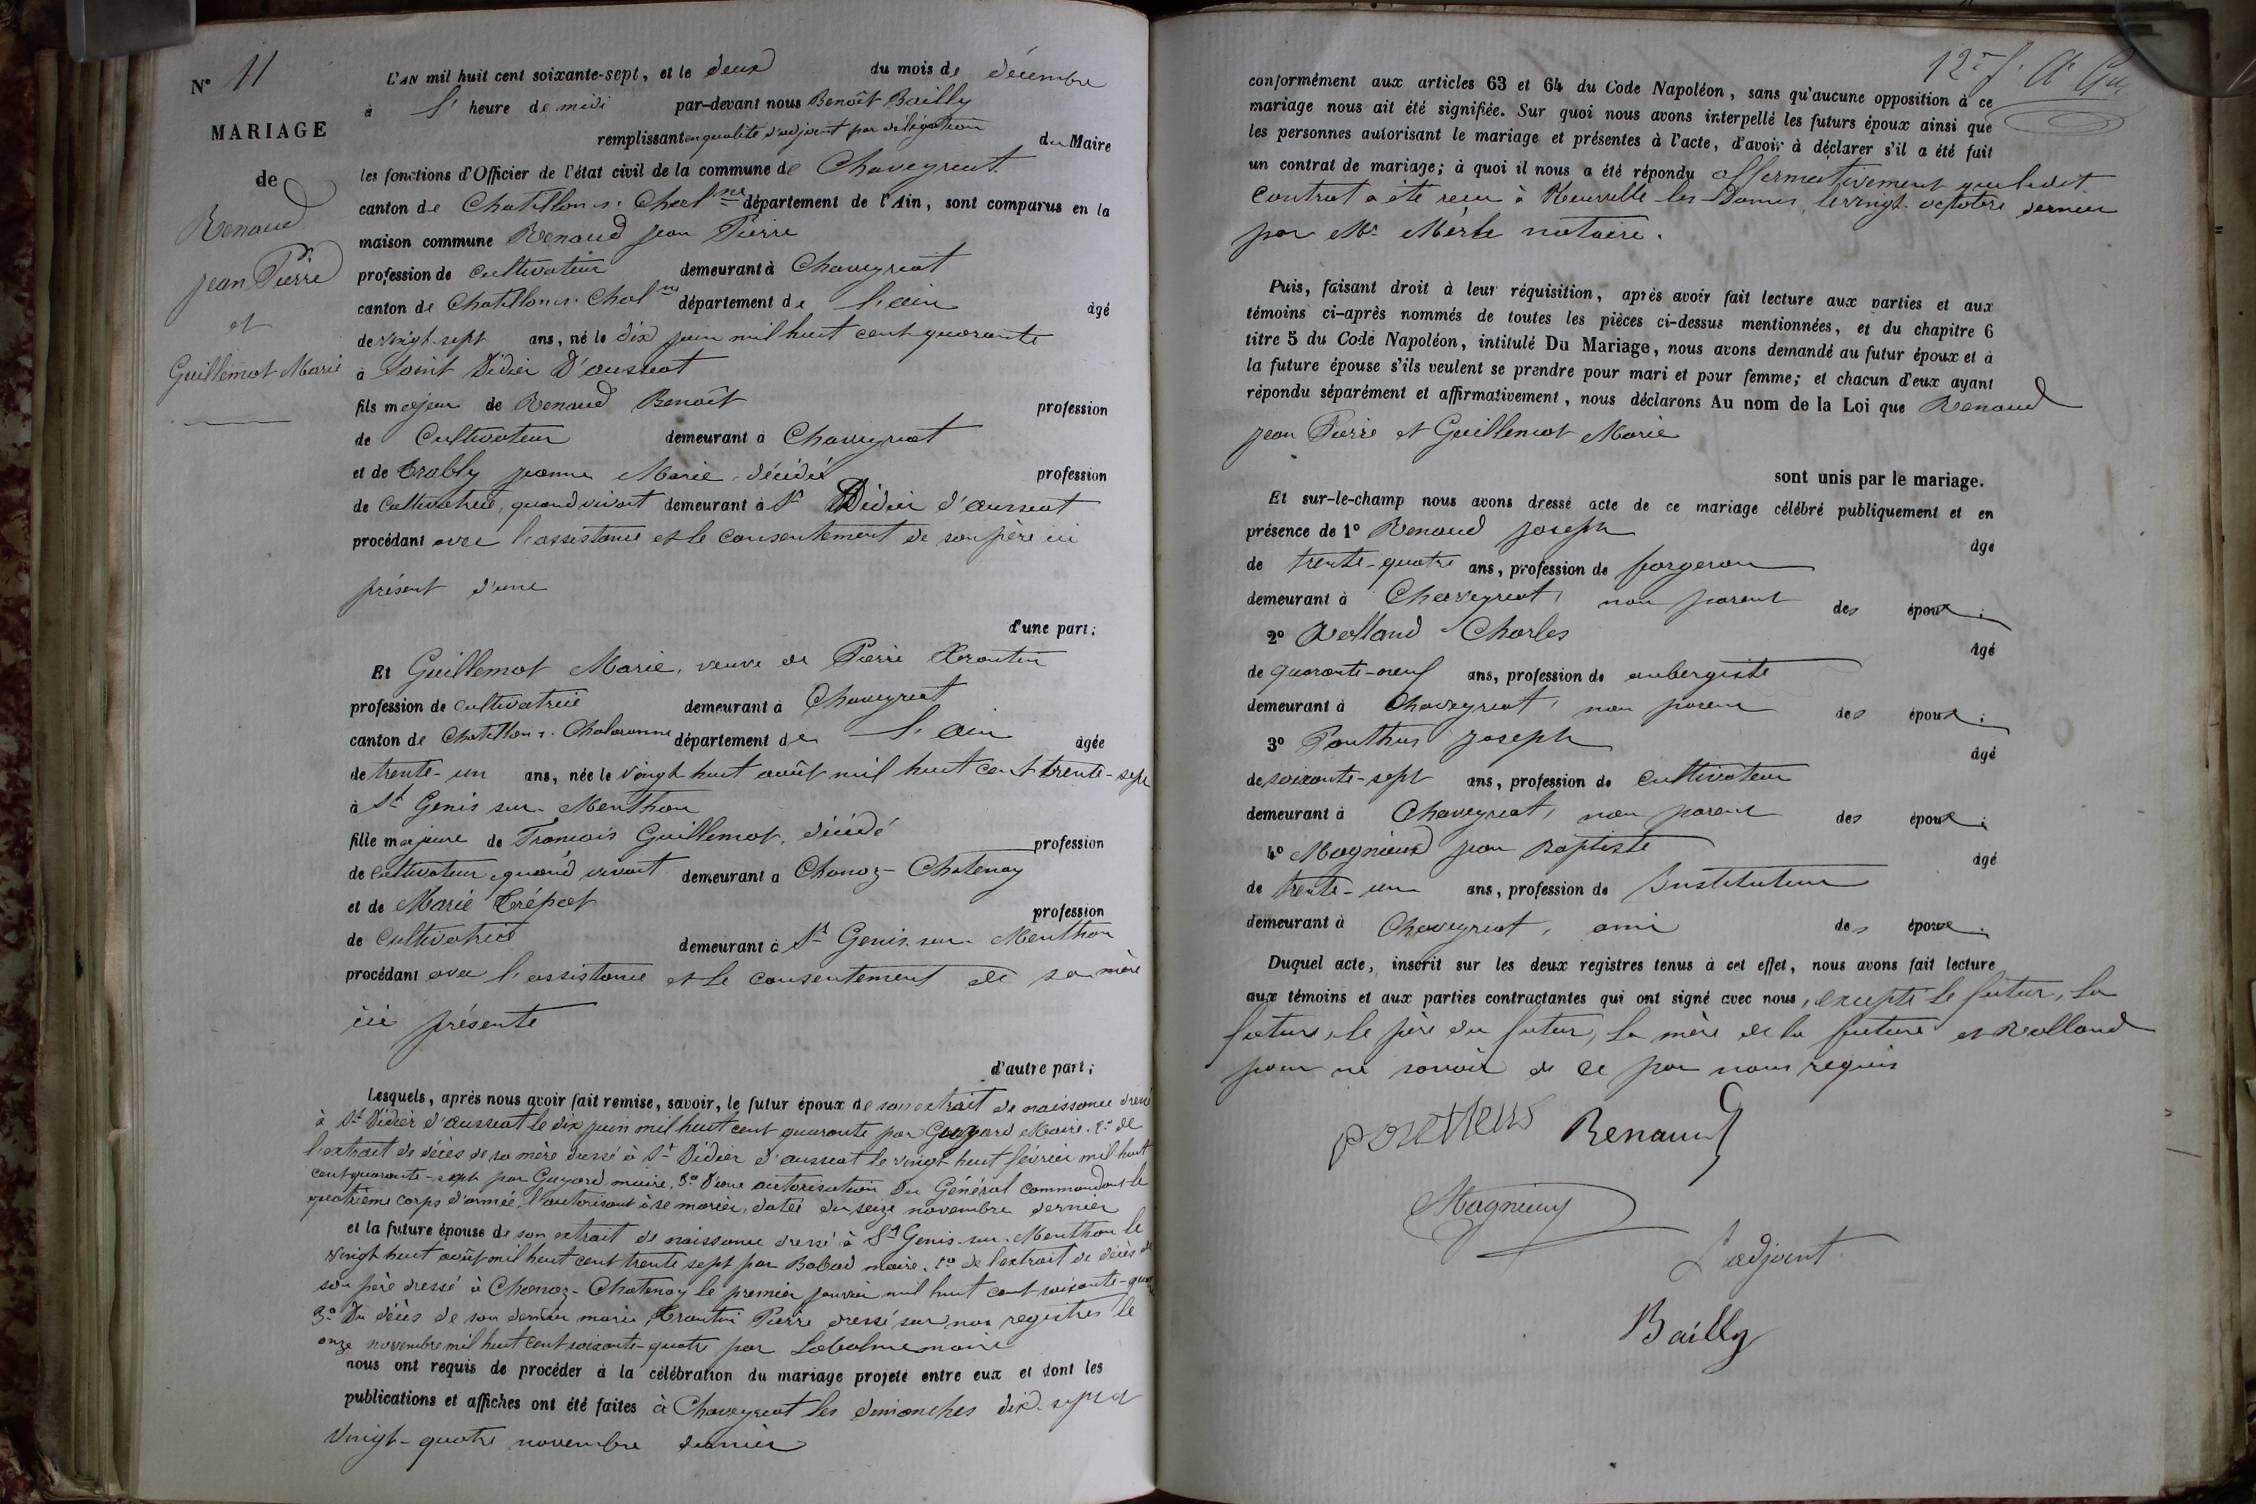 N° 11
MARIAGE
de
Renaud
Jean Pierre
et
Guillemot Marie
L'AN mil huit cent soixante-sept, et le deux du mois de décembre
à l' heure de midi par-devant nous Benoît Bailly
remplissant en qualité d'adjoint par délégation du Maire
les fonctions d'Officier de l'état civil de la commune de Chaveyriat
canton de Chatillon s. Chalne département de l'Ain, sont comparus en la
maison commune Renaud Jean Pierre
profession de cultivateur demeurant à Chaveyriat
canton de Chatillon s. Chalne département de l'ain âgé
de vingt-sept ans, né le dix juin mil huit cent quarante
à Saint Didier D'aussiat
fils majeur de Renaud Benoît profession
de Cultivateur demeurant à Chaveyriat
et de Jeanne Marie décédée profession
de Cultivatrice, quand vivait demeurant à St Didier d'aussiat
procédant avec l'assistance et le consentement de son père ici
présent d'une
d'une part;
Et Guillemot Marie, veuve de Pierre
profession de cultivatrice demeurant à Chaveyriat
canton de Chatillon s. Chalaronne département de l'ain âgée
de trente-un ans, née le vingt huit août mil huit cent trente-sept
à St Genis sur Menthon
fille majeure de François Guillemot, décédé profession
de cultivateur, quand vivait demeurant à Chanoz-Chatenay
et de Marie profession
de Cultivatrice demeurant à St Genis sur Menthon
procédant avec l'assistance et le consentement de sa mère
ici présente
d'autre part;
Lesquels, après nous avoir fait remise, savoir, le futur époux de son extrait de naissance dressé
à St Didier d'aussiat le dix juin mil huit cent quarante par Guyard Maire. 2° de
l'extrait de décès de sa mère dressé à St Didier d'aussiat le vingt huit février mil huit
cent quarante-sept par Guyard maire. 3° D'une autorisation du Général commandant le
quatrième corps d'armée l'autorisant à se marier, datée du seize novembre dernier
et la future épouse de son extrait de naissance dressé à St Genis sur Menthon le
vingt huit août mil huit cent trente sept par maire. 2° de l'extrait de décès de
son père dressé à Chanoz-Chatenay le premier janvier mil huit cent soixante-quatre
3° Du décès de son dernier mari, Pierre dressé sur nos registres le
onze novembre mil huit cent soixante-quatre par Labalme maire
nous ont requis de procéder à la célébration du mariage projeté entre eux et dont les
publications et affiches ont été faites à Chaveyriat les dimanches dix-sept et
vingt-quatre novembre dernier
conformément aux articles 63 et 64 du Code Napoléon, sans qu'aucune opposition à ce
mariage nous ait été signifiée. Sur quoi nous avons interpellé les futurs époux ainsi que
les personnes autorisant le mariage et présentes à l'acte, d'avoir à déclarer s'il a été fait
un contrat de mariage; à quoi il nous a été répondu affirmativement que ledit
contrat a été reçu à Neuville-les-Dames, le vingt octobre dernier
par Me Merle notaire.
Puis, faisant droit à leur réquisition, après avoir fait lecture aux parties et aux
témoins ci-après nommés de toutes les pièces ci-dessus mentionnées, et du chapitre 6
titre 5 du Code Napoléon, intitulé Du Mariage, nous avons demandé au futur époux et à
la future épouse s'ils veulent se prendre pour mari et pour femme; et chacun d'eux ayant
répondu séparément et affirmativement, nous déclarons Au nom de la Loi que Renaud
Jean Pierre et Guillemot Marie
sont unis par le mariage.
Et sur-le-champ nous avons dressé acte de ce mariage célébré publiquement et en
présence de 1° Renaud Joseph âgé
de trente-quatre ans, profession de forgeron
demeurant à Chaveyriat, non parent des époux;
2° Rolland Charles âgé
de quarante-neuf ans, profession de aubergiste
demeurant à Chaveyriat, non parent des époux;
3° Ponthus Joseph âgé
de soixante-sept ans, profession de Cultivateur
demeurant à Chaveyriat, non parent des époux;
4° Magnieux Jean Baptiste âgé
de trente-un ans, profession de Instituteur
demeurant à Chaveyriat, ami des époux.
Duquel acte, inscrit sur les deux registres tenus à cet effet, nous avons fait lecture
aux témoins et aux parties contractantes qui ont signé avec nous, excepté le futur, la
future, le père du futur, la mère de la future et Rolland
pour ne savoir de ce par nous requis
Renaud
Magnieux
L'adjoint
Bailly